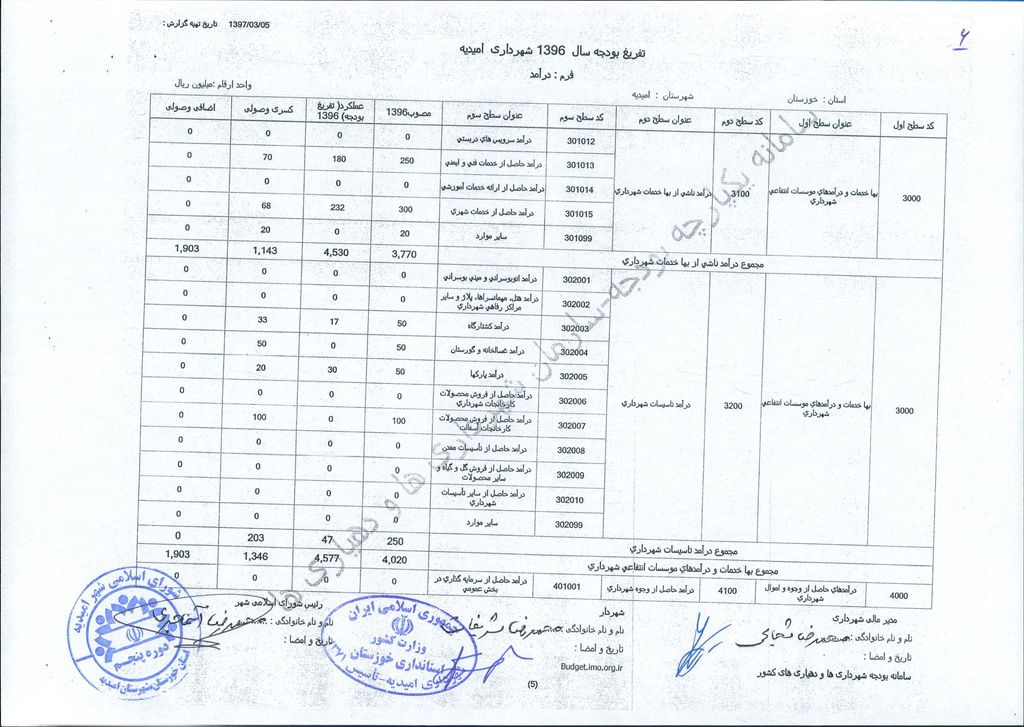 تاریخ تهیه گزارش : 1397/03/05
۶
تفریغ بودجه سال 1396 شهرداری امیدیه
فرم : درآمد
استان : خوزستان شهرستان : امیدیه واحد ارقام :میلیون ریال
کد سطح اول عنوان سطح اول کد سطح دوم عنوان سطح دوم کد سطح سوم عنوان سطح سوم مصوب1396 عملکرد( تفریغ بودجه) 1396 کسری وصولی اضافی وصولی
3000 بها خدمات و درآمدهاي موسسات انتفاعي شهرداري 3100 درآمد ناشي از بها خدمات شهرداري
301012 درآمد سرويس هاي دربستي 0 0 0 0
301013 درآمد حاصل از خدمات فني و ايمني 250 180 70 0
301014 درآمد حاصل از ارائه خدمات آموزشي 0 0 0 0
301015 درآمد حاصل از خدمات شهري 300 232 68 0
301099 ساير موارد 20 0 20 0
مجموع درآمد ناشي از بها خدمات شهرداري 3,770 4,530 1,143 1,903
3000 بها خدمات و درآمدهاي موسسات انتفاعي شهرداري 3200 درآمد تاسيسات شهرداري
302001 درآمد اتوبوسراني و ميني بوسراني 0 0 0 0
302002 درآمد هتل، ميهمانسراها، پلاژ و ساير مراكز رفاهي شهرداري 0 0 0 0
302003 درآمد كشتارگاه 50 17 33 0
302004 درآمد غسالخانه و گورستان 50 0 50 0
302005 درآمد پاركها 50 30 20 0
302006 درآمد حاصل از فروش محصولات كارخانجات شهرداري 0 0 0 0
302007 درآمد حاصل از فروش محصولات كارخانجات آسفالت 100 0 100 0
302008 درآمد حاصل از تأسيسات معدن 0 0 0 0
302009 درآمد حاصل از فروش گل و گياه و ساير محصولات 0 0 0 0
302010 درآمد حاصل از ساير تأسيسات شهرداري 0 0 0 0
302099 ساير موارد 0 0 0 0
مجموع درآمد تاسيسات شهرداري 250 47 203 0
مجموع بها خدمات و درآمدهاي موسسات انتفاعي شهرداري 4,020 4,577 1,346 1,903
4000 درآمدهاي حاصل از وجوه و اموال شهرداري 4100 درآمد حاصل از وجوه شهرداري 401001 درآمد حاصل از سرمايه گذاري در بخش عمومي 0 0 0 0
سامانه یکپارچه بودجه-سازمان شهرداری ها و دهیاری ها
مدیر مالی شهرداری
نام و نام خانوادگی :
تاریخ و امضا :
شهردار
نام و نام خانوادگی : محمدرضا
تاریخ و امضا :
رئیس شورای اسلامی شهر
نام و نام خانوادگی :
تاریخ و امضا :
سامانه بودجه شهرداری ها و دهیاری های کشور
Budget.imo.org.ir
(5)
جمهوری اسلامی ایران
وزارت کشور
استانداری خوزستان
شهرداری امیدیه-تاسیس
شورای اسلامی شهر امیدیه
دوره پنجم
استان خوزستان-شهرستان امیدیه